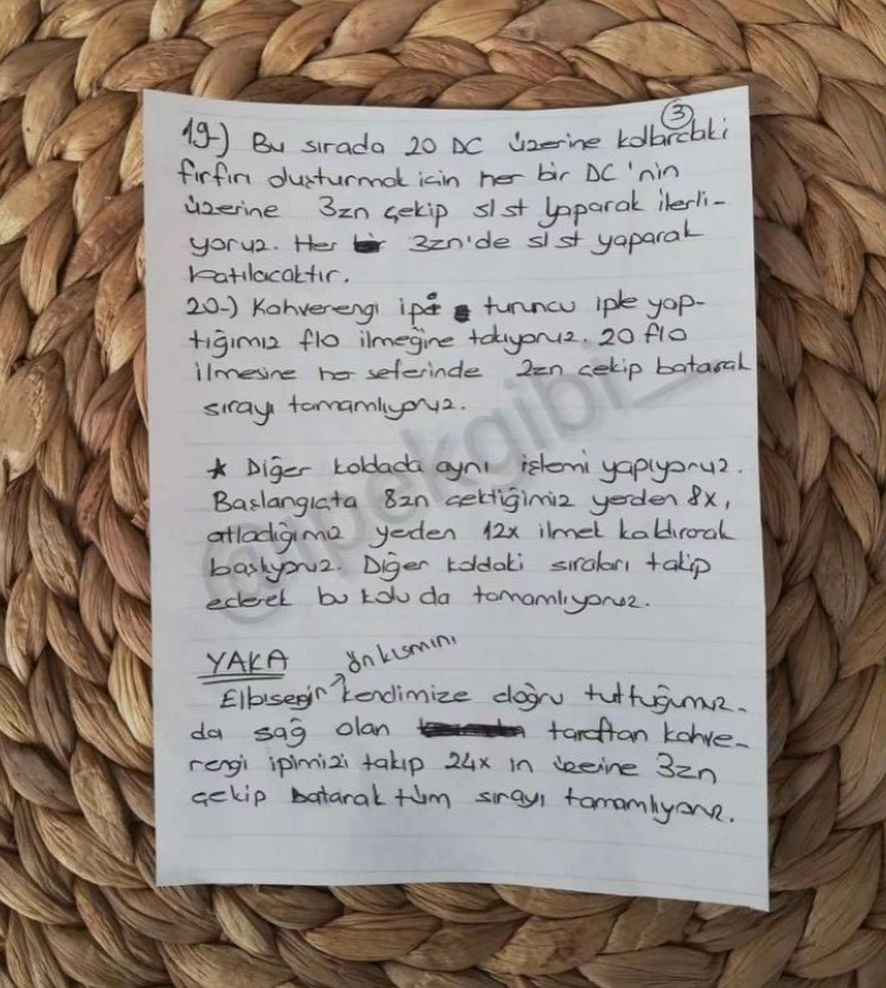 3
19-) Bu sırada 20 DC üzerine kollardaki
fırfırı oluşturmak için her bir DC'nin
üzerine 3zn çekip sl st yaparak ilerli-
yoruz. Her 3zn'de sl st yaparak
batılacaktır.
20-) Kahverengi ipi turuncu iple yap-
tığımız flo ilmeğine takıyoruz. 20 flo
ilmesine her seferinde 2zn çekip batarak
sırayı tamamlıyoruz.
* Diğer koldada aynı işlemi yapıyoruz.
Başlangıçta 8zn çektiğimiz yerden 8x,
atladığımız yerden 12x ilmek kaldırarak
başlıyoruz. Diğer koldaki sıraları takip
ederek bu kolu da tamamlıyoruz.
YAKA
ön kısmını
Elbisenin kendimize doğru tuttuğumuz-
da sağ olan taraftan kahve-
rengi ipimizi takıp 24x in üzerine 3zn
çekip batarak tüm sırayı tamamlıyoruz.
@ipekgibi_